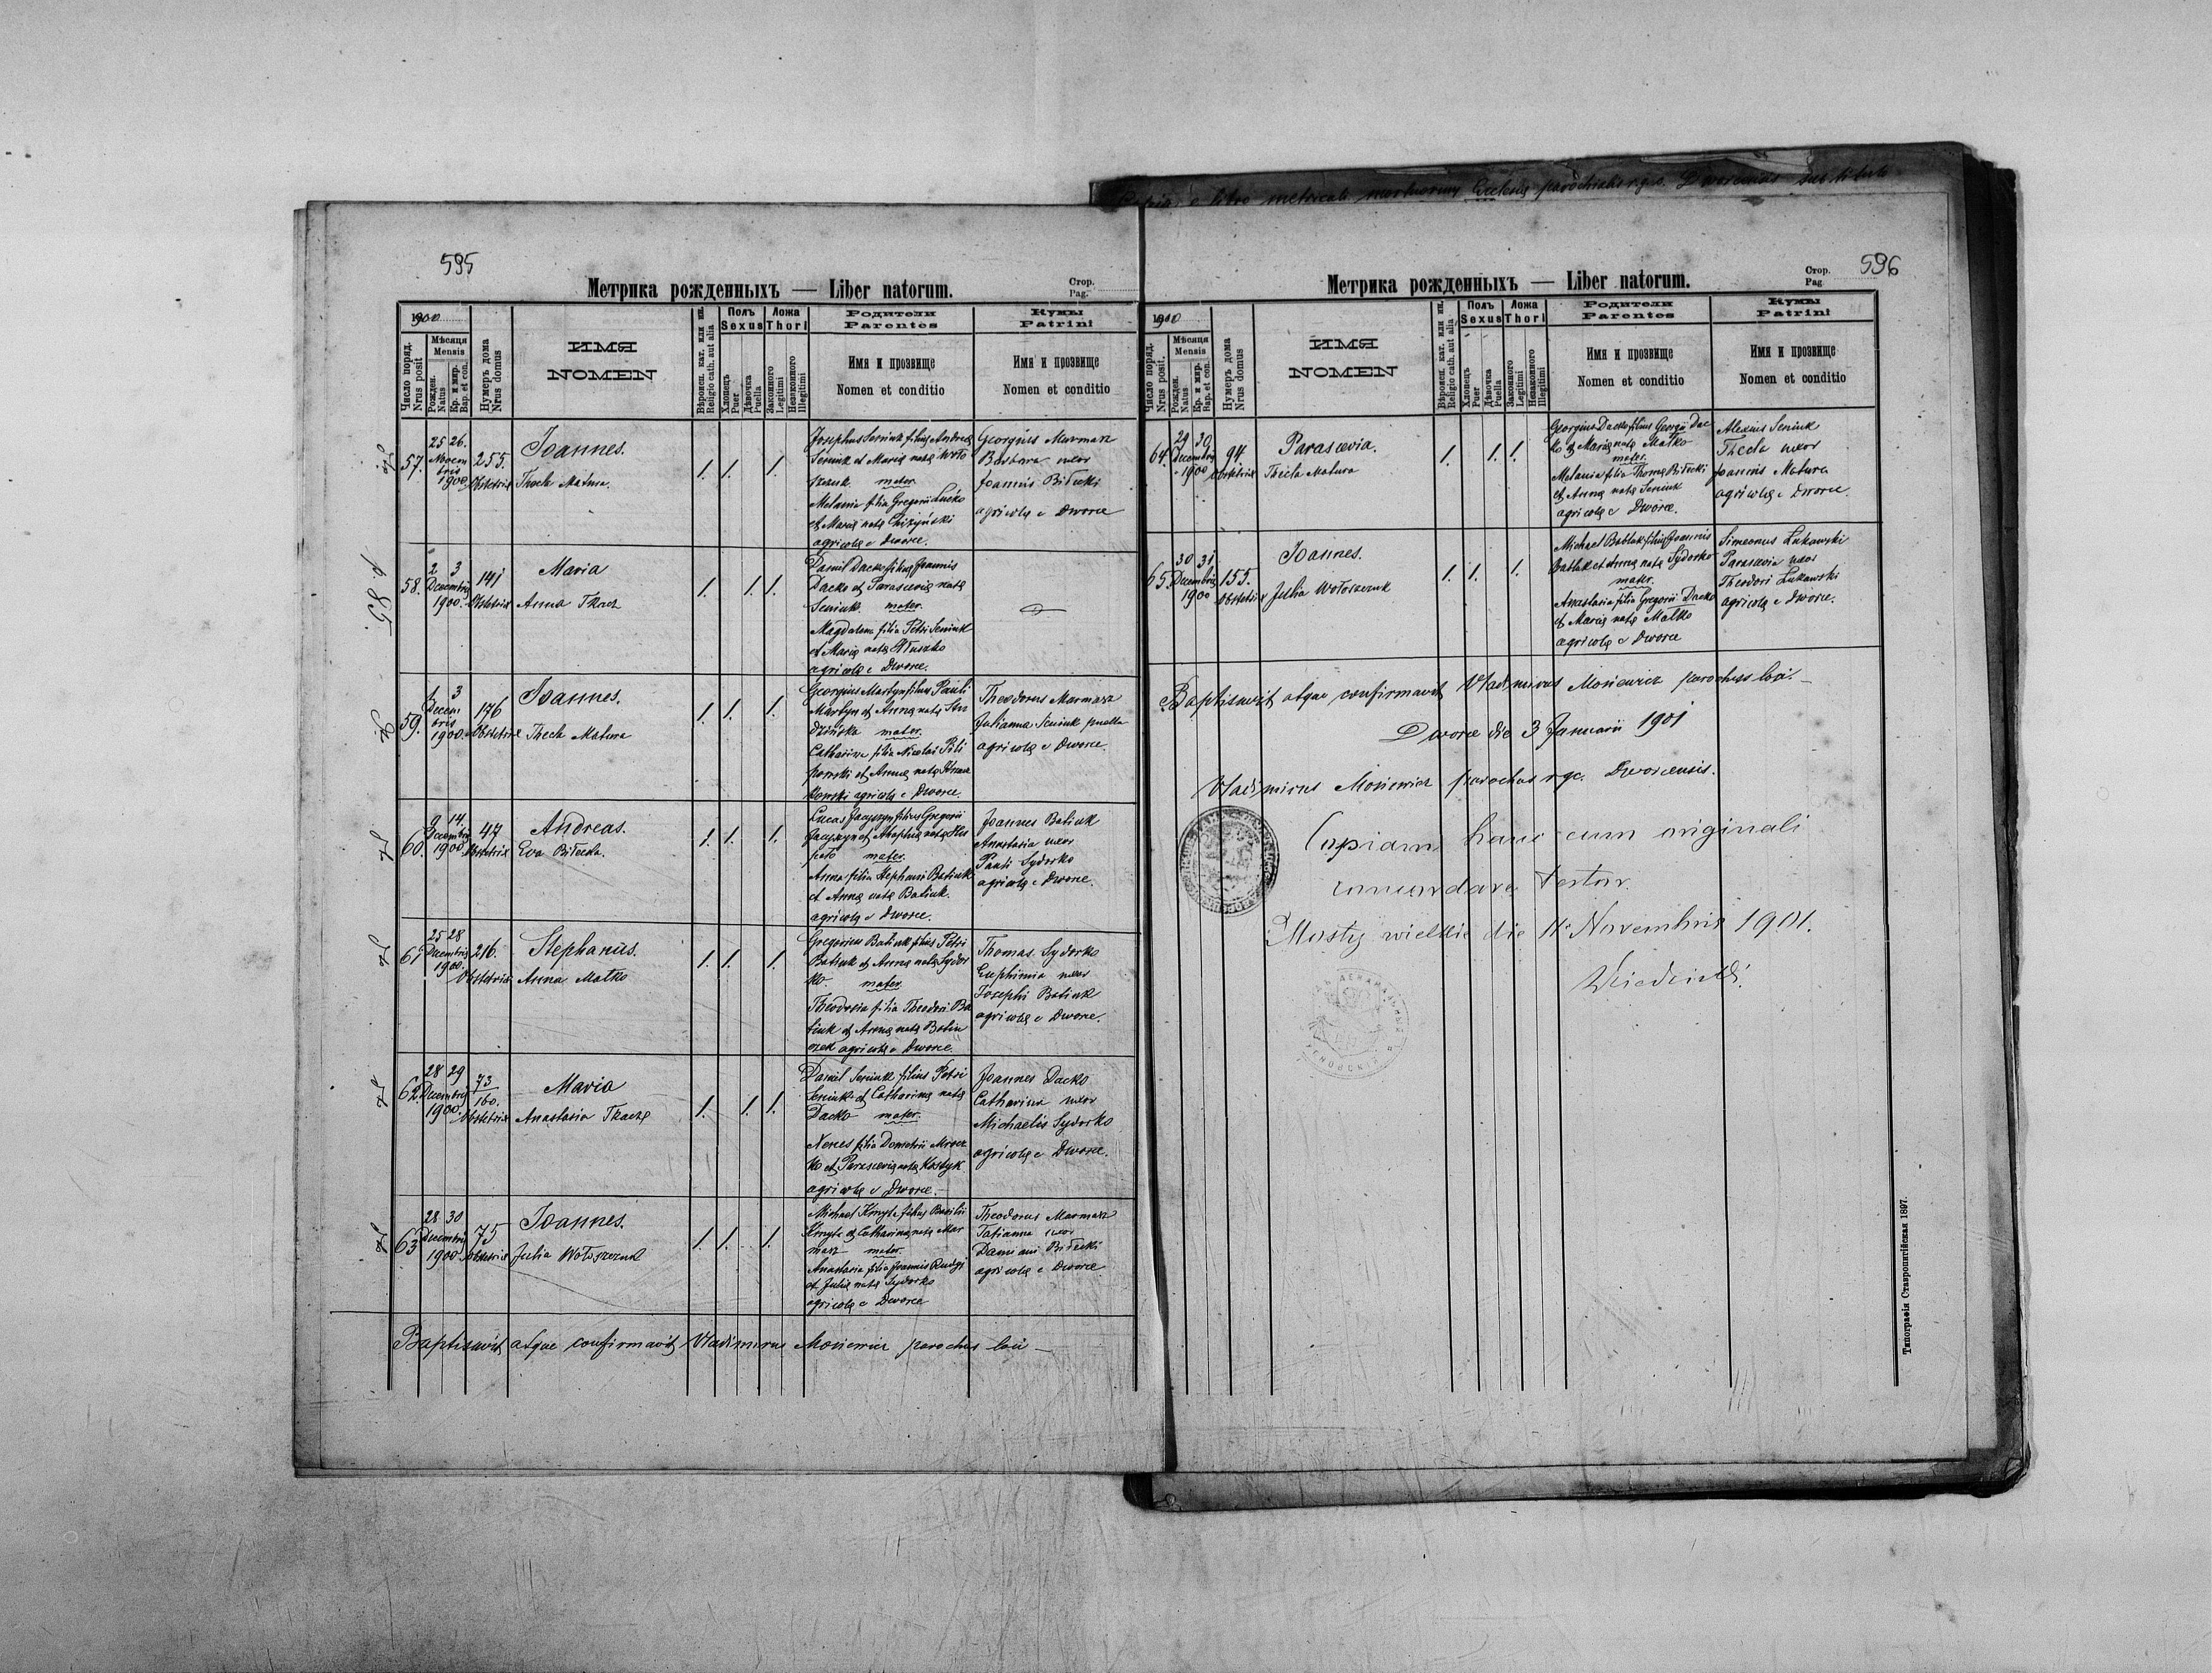 595
Метрика рожденныхъ — Liber natorum.
Стор.
Pag.
1900
Число поряд.
Nrus posit.
Мѣсяця
Mensis
Рожден.
Natus
Кр. и мир.
Bap. et con.
Нумеръ дома
Nrus domus
ИМЯ
NOMEN
Вѣроисп. кат. или ин.
Religio cath. aut alia
Полъ
Sexus
Хлопецъ
Puer
Дѣвочка
Puella
Ложа
Thori
Законного
Legitimi
Незаконного
Illegitimi
Родители
Parentes
Имя и прозвище
Nomen et conditio
Кумы
Patrini
Имя и прозвище
Nomen et conditio
57.
25 26.
Novem
bris
1900
255.
Obstetrix
Joannes.
Thecla Matura.
1. 1. 1.
Josephus Seniuk filius Andreą
Seniuk et Marią natą Woło
szczuk mater
Melania filia Gregorii Luśko
et Marią natą
agricolą e Dworce.
Georgius Marmasz
Barbara uxor
Joannis Biłecki
agricolą e Dworce
58.
2 3
Decembris
1900.
141
Obstetrix
Maria
Anna Tkacz
1. 1. 1.
Daniil Dacko filius Joannis
Dacko et Parascevią natą
Seniuk. mater.
Magdalena filia Petri Seniuk
et Marią natą
agricolą e Dworce.
59.
3
Decem
bris
1900.
176
Obstetrix
Joannes.
Thecla Matura
1. 1. 1.
Georgius Martyn filius Pauli
Martyn et Anną natą
mater.
Catharina filia Nicolai Pili
powski et Anną natą
kowski agricolą e Dworce.
Theodorus Marmasz
Julianna Seniuk puella
agricolą e Dworce.
60.
9 14.
Decembris
1900
47
Obstetrix
Andreas.
Eva Biłecka.
1. 1. 1.
Lucas Jacyszyn filius Gregorii
Jacyszyn et natą
mater.
Anna filia Stephani Batiuk
et Anną natą Batiuk.
agricolą e Dworce.
Joannes Batiuk
Anastasia uxor
Pauli Sydorko
agricolą e Dworce.
61
25 28
Decembris
1900.
216.
Obstetrix
Stephanus.
Anna Matko
1. 1. 1.
Gregorius Batiuk filius Petri
Batiuk et Anną natą Sydor
ko. mater
Theodosia filia Theodori Ba
tiuk et Anną natą
agricolą e Dworce.
Thomas Sydorko
Euphimia uxor
Josephi Batiuk
agricolą e Dworce.
62.
28 29
Decembris
1900.
73
160.
Obstetrix
Maria
Anastasia Tkaczą
1. 1. 1.
Daniil Seniuk filius Petri
Seniuk et Catharina natą
Dacko mater.
filia Demetrii
ko et Parascevią natą Kostyk
agricolą e Dworce.
Joannes Dacko
Catharina uxor
Michaelis Sydorko
agricolą e Dworce.
63
28 30
Decembris
1900
75
Obstetrix
Joannes.
Julia Wołoszczuk
1. 1. 1.
Michael Kmyta filius Basilii
Kmyta et Catharina natą Mar
masz mater.
Anastasia filia Joannis
et Julią natą Sydorko
agricolą e Dworce
Theodorus Marmasz
Tatianna uxor
Damiani Biłecki
agricolą e Dworce
Baptisavit atque confirmavit Vladimirus Mosiewicz parochus loci —
596
Метрика рожденныхъ — Liber natorum.
Стор.
Pag.
1900
Число поряд.
Nrus posit.
Мѣсяця
Mensis
Рожден.
Natus
Кр. и мир.
Bap. et con.
Нумеръ дома
Nrus domus
ИМЯ
NOMEN
Вѣроисп. кат. или ин.
Religio cath. aut alia
Полъ
Sexus
Хлопецъ
Puer
Дѣвочка
Puella
Ложа
Thori
Законного
Legitimi
Незаконного
Illegitimi
Родители
Parentes
Имя и прозвище
Nomen et conditio
Кумы
Patrini
Имя и прозвище
Nomen et conditio
64.
29 30
Decembris
1900
94.
Obstetrix
Parascevia.
Thecla Matura
1. 1. 1.
Georgius Dacko filius Georgii Dac
ko et Marią natą Matko
mater.
Melania filia Thomą Biłecki
et Anną natą Seniuk
agricolą e Dworce.
Alexius Seniuk
Thecla uxor
Joannis Matura
agricolą e Dworce.
65.
30 31
Decembris
1900
155.
Obstetrix
Joannes.
Julia Wołoszczuk
1. 1. 1.
Michael Bablak filius Joannis
Bablak et Anną natą Sydorko
mater.
Anastasia filia Gregorii Dacko
et Marią natą Matko
agricolą e Dworce
Simeonus Lukawski
Parascevia uxor
Theodori Lukawski
agricolą e Dworce.
Baptisavit atque confirmavit Vladimirus Mosiewicz parochus loci. —
Dworce die 3 Januarii 1901
Vladimirus Mosiewicz parochus r. g. c. Dworcensis.
Copiam hanc cum originali
concordare testor.
Mosty wielkie die 11 Novembris 1901.
Типографія Ставропигійская 1897.